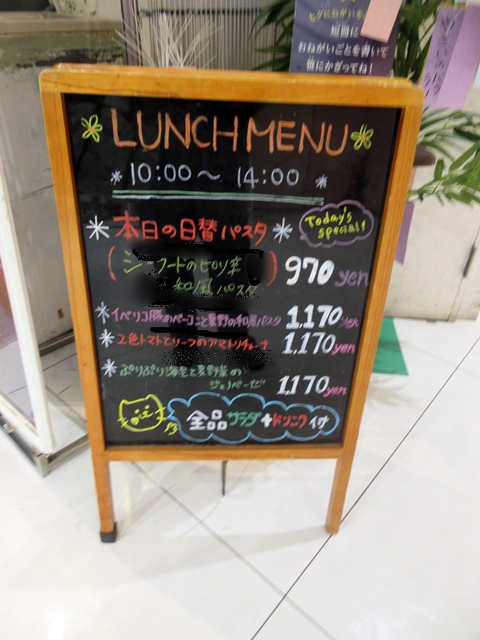 ヒゲにねがいを
短冊に
おねがいごとを書いて
笹にかざってね!
LUNCH MENU
10:00〜 14:00
本日の日替パスタ
Today's special!
フードのピリ辛
和風パスタ
970 yen
イベリコ豚のベーコンと夏野の和風パスタ 1,170 yen
2色トマトとリーフのアマトリチャーナ 1,170 yen
ぷりぷり海老と夏野菜の
1,170 yen
全品サラダ+ドリンク付